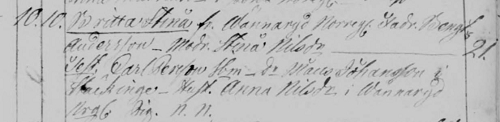 10. 10. Britta Stina fr. Wannaryd Norreg. Fadr. Bengt
Andersson – Modr. Stina Nilsdr 21.
Test. Carl Persson ibm – Dr. Maria Johansson i
– Hust. Anna Nilsdr. i Wannaryd
Norg. Pig. N. N.